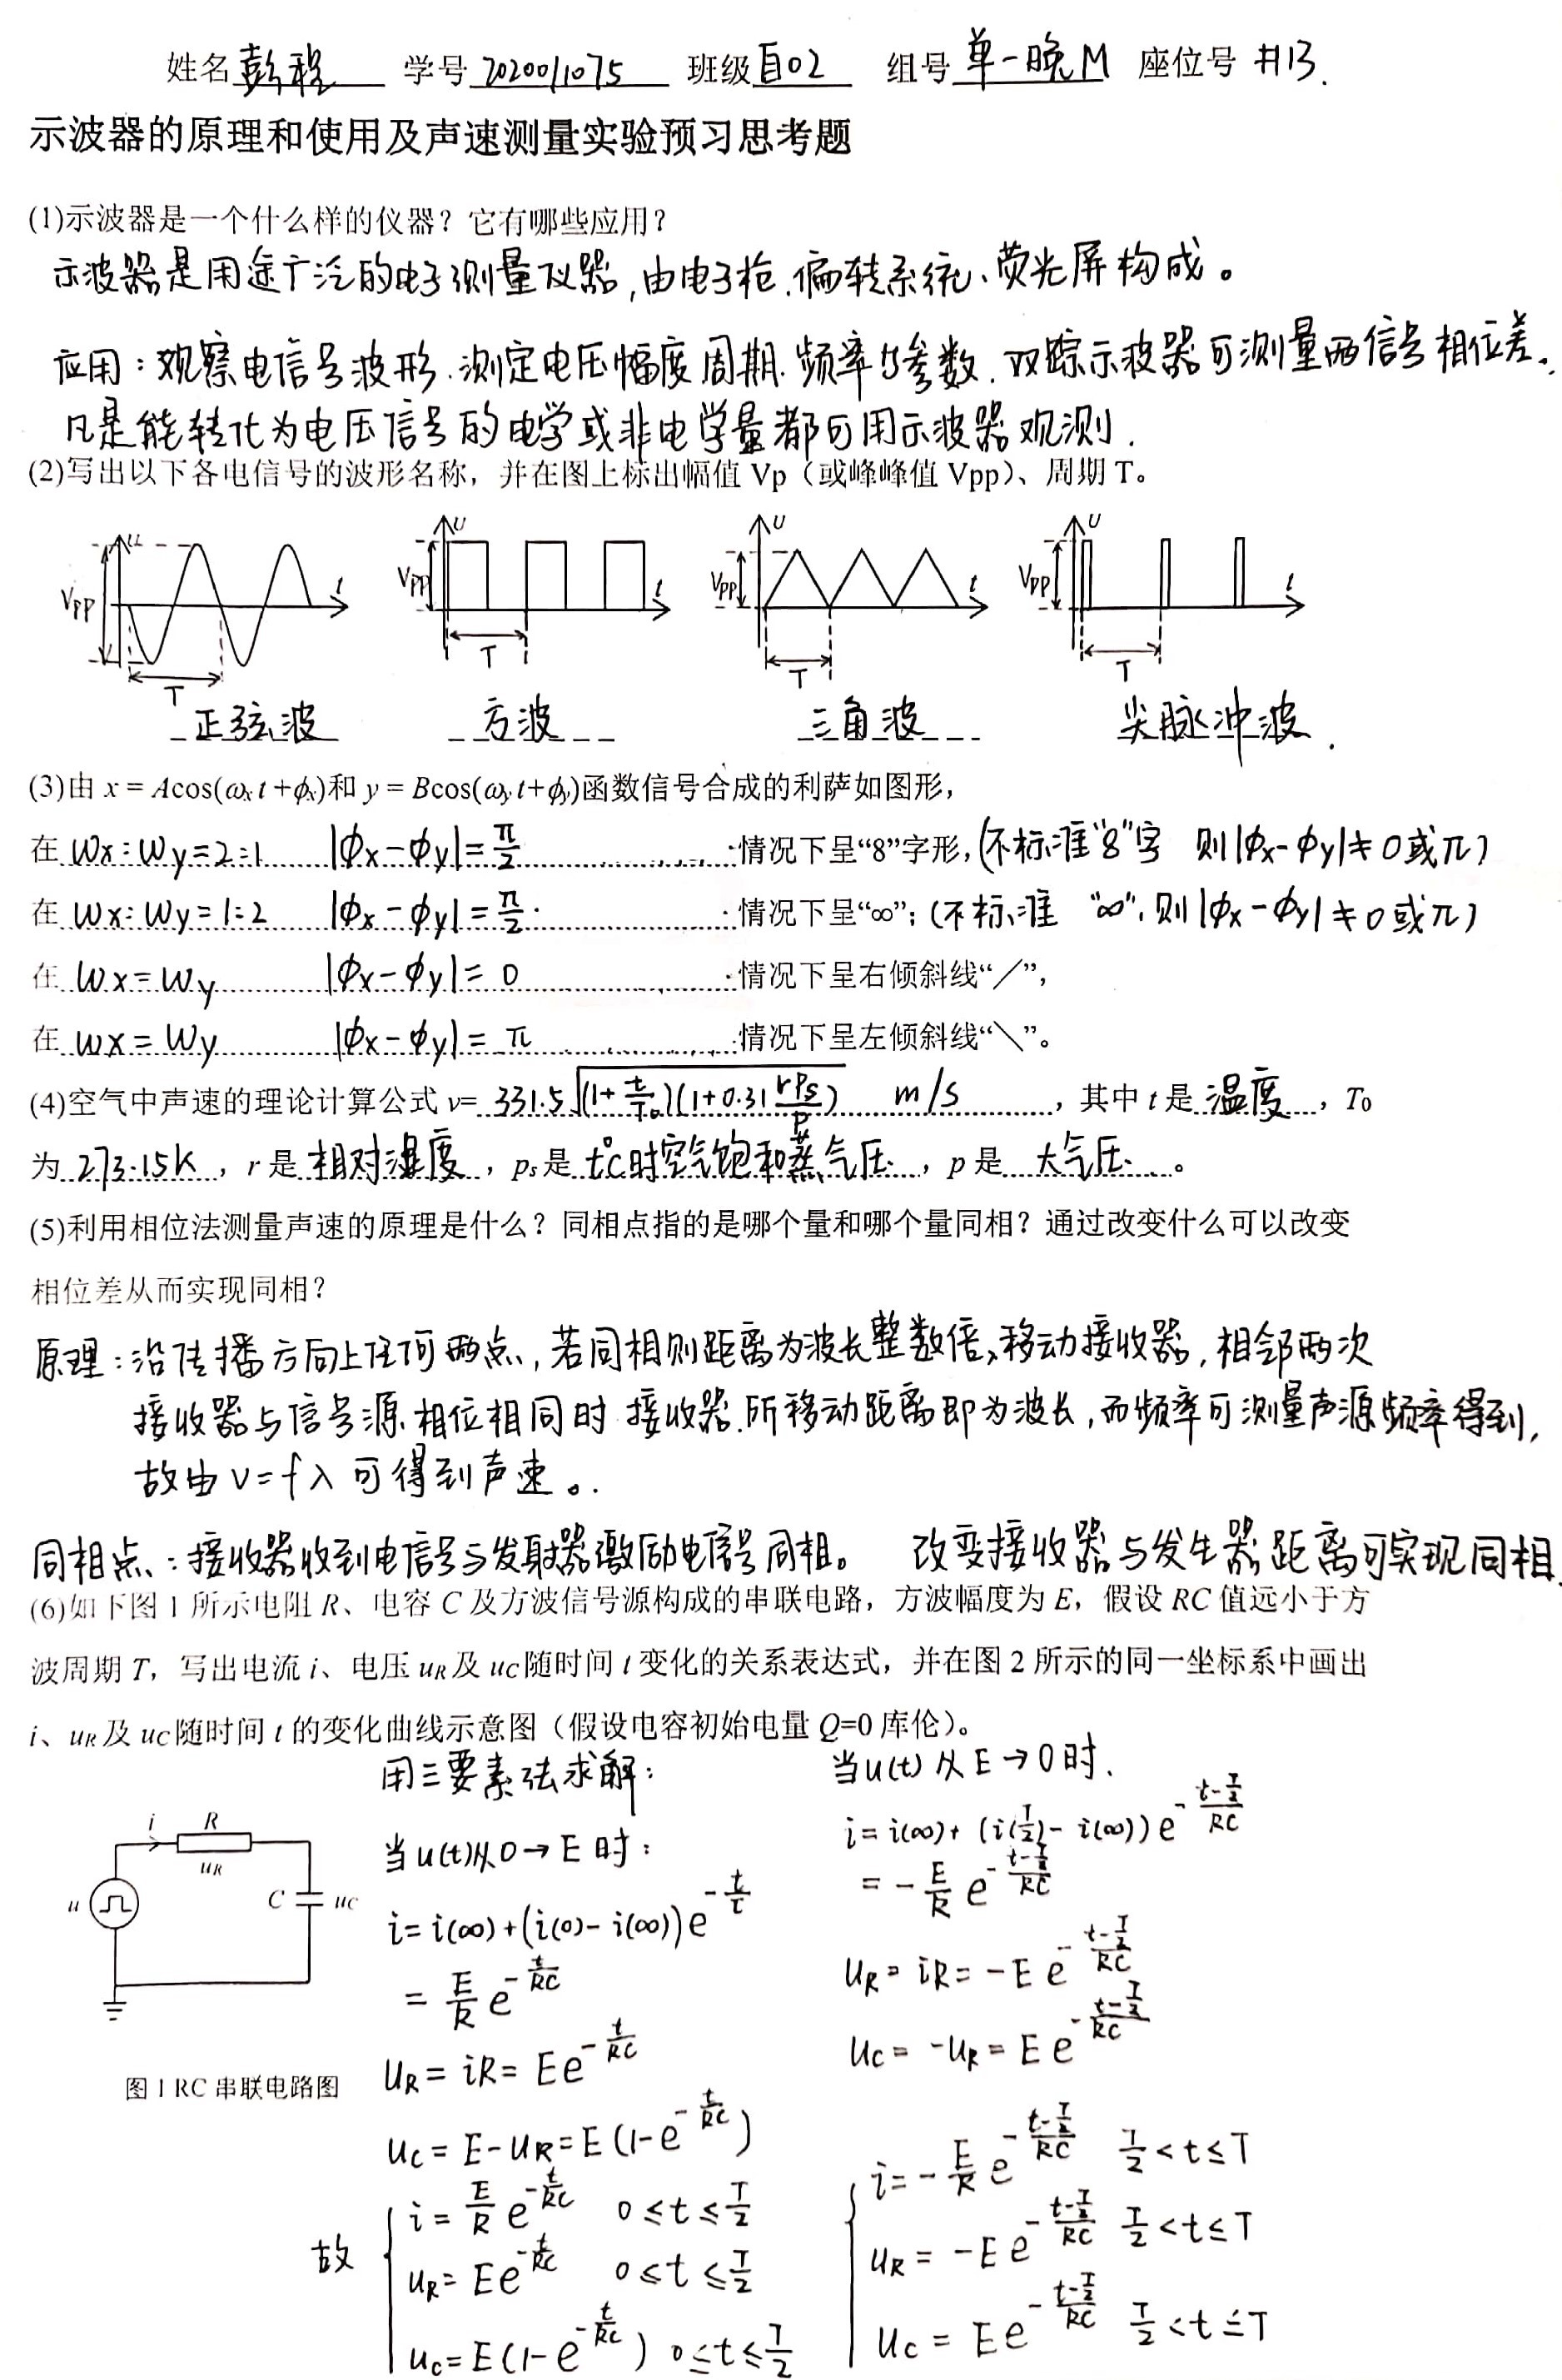 姓名 彭程 学号 2020011075 班级 自02 组号 单一晚M 座位号 #13.
示波器的原理和使用及声速测量实验预习思考题
(1)示波器是一个什么样的仪器？它有哪些应用？
示波器是用途广泛的电子测量仪器,由电子枪、偏转系统、荧光屏构成。
应用：观察电信号波形、测定电压幅度、周期、频率等参数. 双踪示波器可测量两信号相位差.
凡是能转化为电压信号的电学或非电学量都可用示波器观测.
(2)写出以下各电信号的波形名称，并在图上标出幅值 Vp（或峰峰值 Vpp）、周期 T。
u t Vpp T U t Vpp T U t Vpp T U t Vpp T
正弦波 方波 三角波 尖脉冲波.
(3)由 x = Acos(ωx t +ϕx)和 y = Bcos(ωy t+ϕy)函数信号合成的利萨如图形，
在 ωx:ωy=2:1 |ϕx-ϕy|=π/2 情况下呈“8”字形, (不标准"8"字 则|ϕx-ϕy|≠0或π)
在 ωx:ωy=1:2 |ϕx-ϕy|=π/2 情况下呈“∞”; (不标准 "∞", 则|ϕx-ϕy|≠0或π)
在 ωx=ωy |ϕx-ϕy|=0 情况下呈右倾斜线“／”，
在 ωx=ωy |ϕx-ϕy|=π 情况下呈左倾斜线“＼”。
(4)空气中声速的理论计算公式 v= 331.5√((1+t/T₀)(1+0.31 rPs/P)) m/s，其中 t 是 温度，T0
为 273.15K，r 是 相对湿度，ps是 t°C时空气饱和蒸气压，p 是 大气压。
(5)利用相位法测量声速的原理是什么？同相点指的是哪个量和哪个量同相？通过改变什么可以改变
相位差从而实现同相？
原理：沿传播方向上任何两点,若同相则距离为波长整数倍,移动接收器,相邻两次
接收器与信号源相位相同时接收器所移动距离即为波长,而频率可测量声源频率得到,
故由 v=fλ 可得到声速。
同相点：接收器收到电信号与发射器激励电信号同相。 改变接收器与发生器距离可实现同相.
(6)如下图 1 所示电阻 R、电容 C 及方波信号源构成的串联电路，方波幅度为 E，假设 RC 值远小于方
波周期 T，写出电流 i、电压 uR及 uC随时间 t 变化的关系表达式，并在图 2 所示的同一坐标系中画出
i、uR及 uC随时间 t 的变化曲线示意图（假设电容初始电量 Q=0 库伦）。
i R uR u C uC
图 1 RC 串联电路图
用三要素法求解：
当u(t)从0→E时：
i=i(∞)+(i(0)-i(∞))e^(-t/τ)
=E/R e^(-t/RC)
uR=iR=Ee^(-t/RC)
uC=E-uR=E(1-e^(-t/RC))
当u(t)从E→0时.
i=i(∞)+(i(T/2)-i(∞))e^(-(t-T/2)/RC)
=-E/R e^(-(t-T/2)/RC)
uR=iR=-Ee^(-(t-T/2)/RC)
uC=-uR=Ee^(-(t-T/2)/RC)
故 i=E/R e^(-t/RC) 0≤t≤T/2 i=-E/R e^(-(t-T/2)/RC) T/2<t≤T
uR=Ee^(-t/RC) 0≤t≤T/2 uR=-Ee^(-(t-T/2)/RC) T/2<t≤T
uC=E(1-e^(-t/RC)) 0≤t≤T/2 uC=Ee^(-(t-T/2)/RC) T/2<t≤T